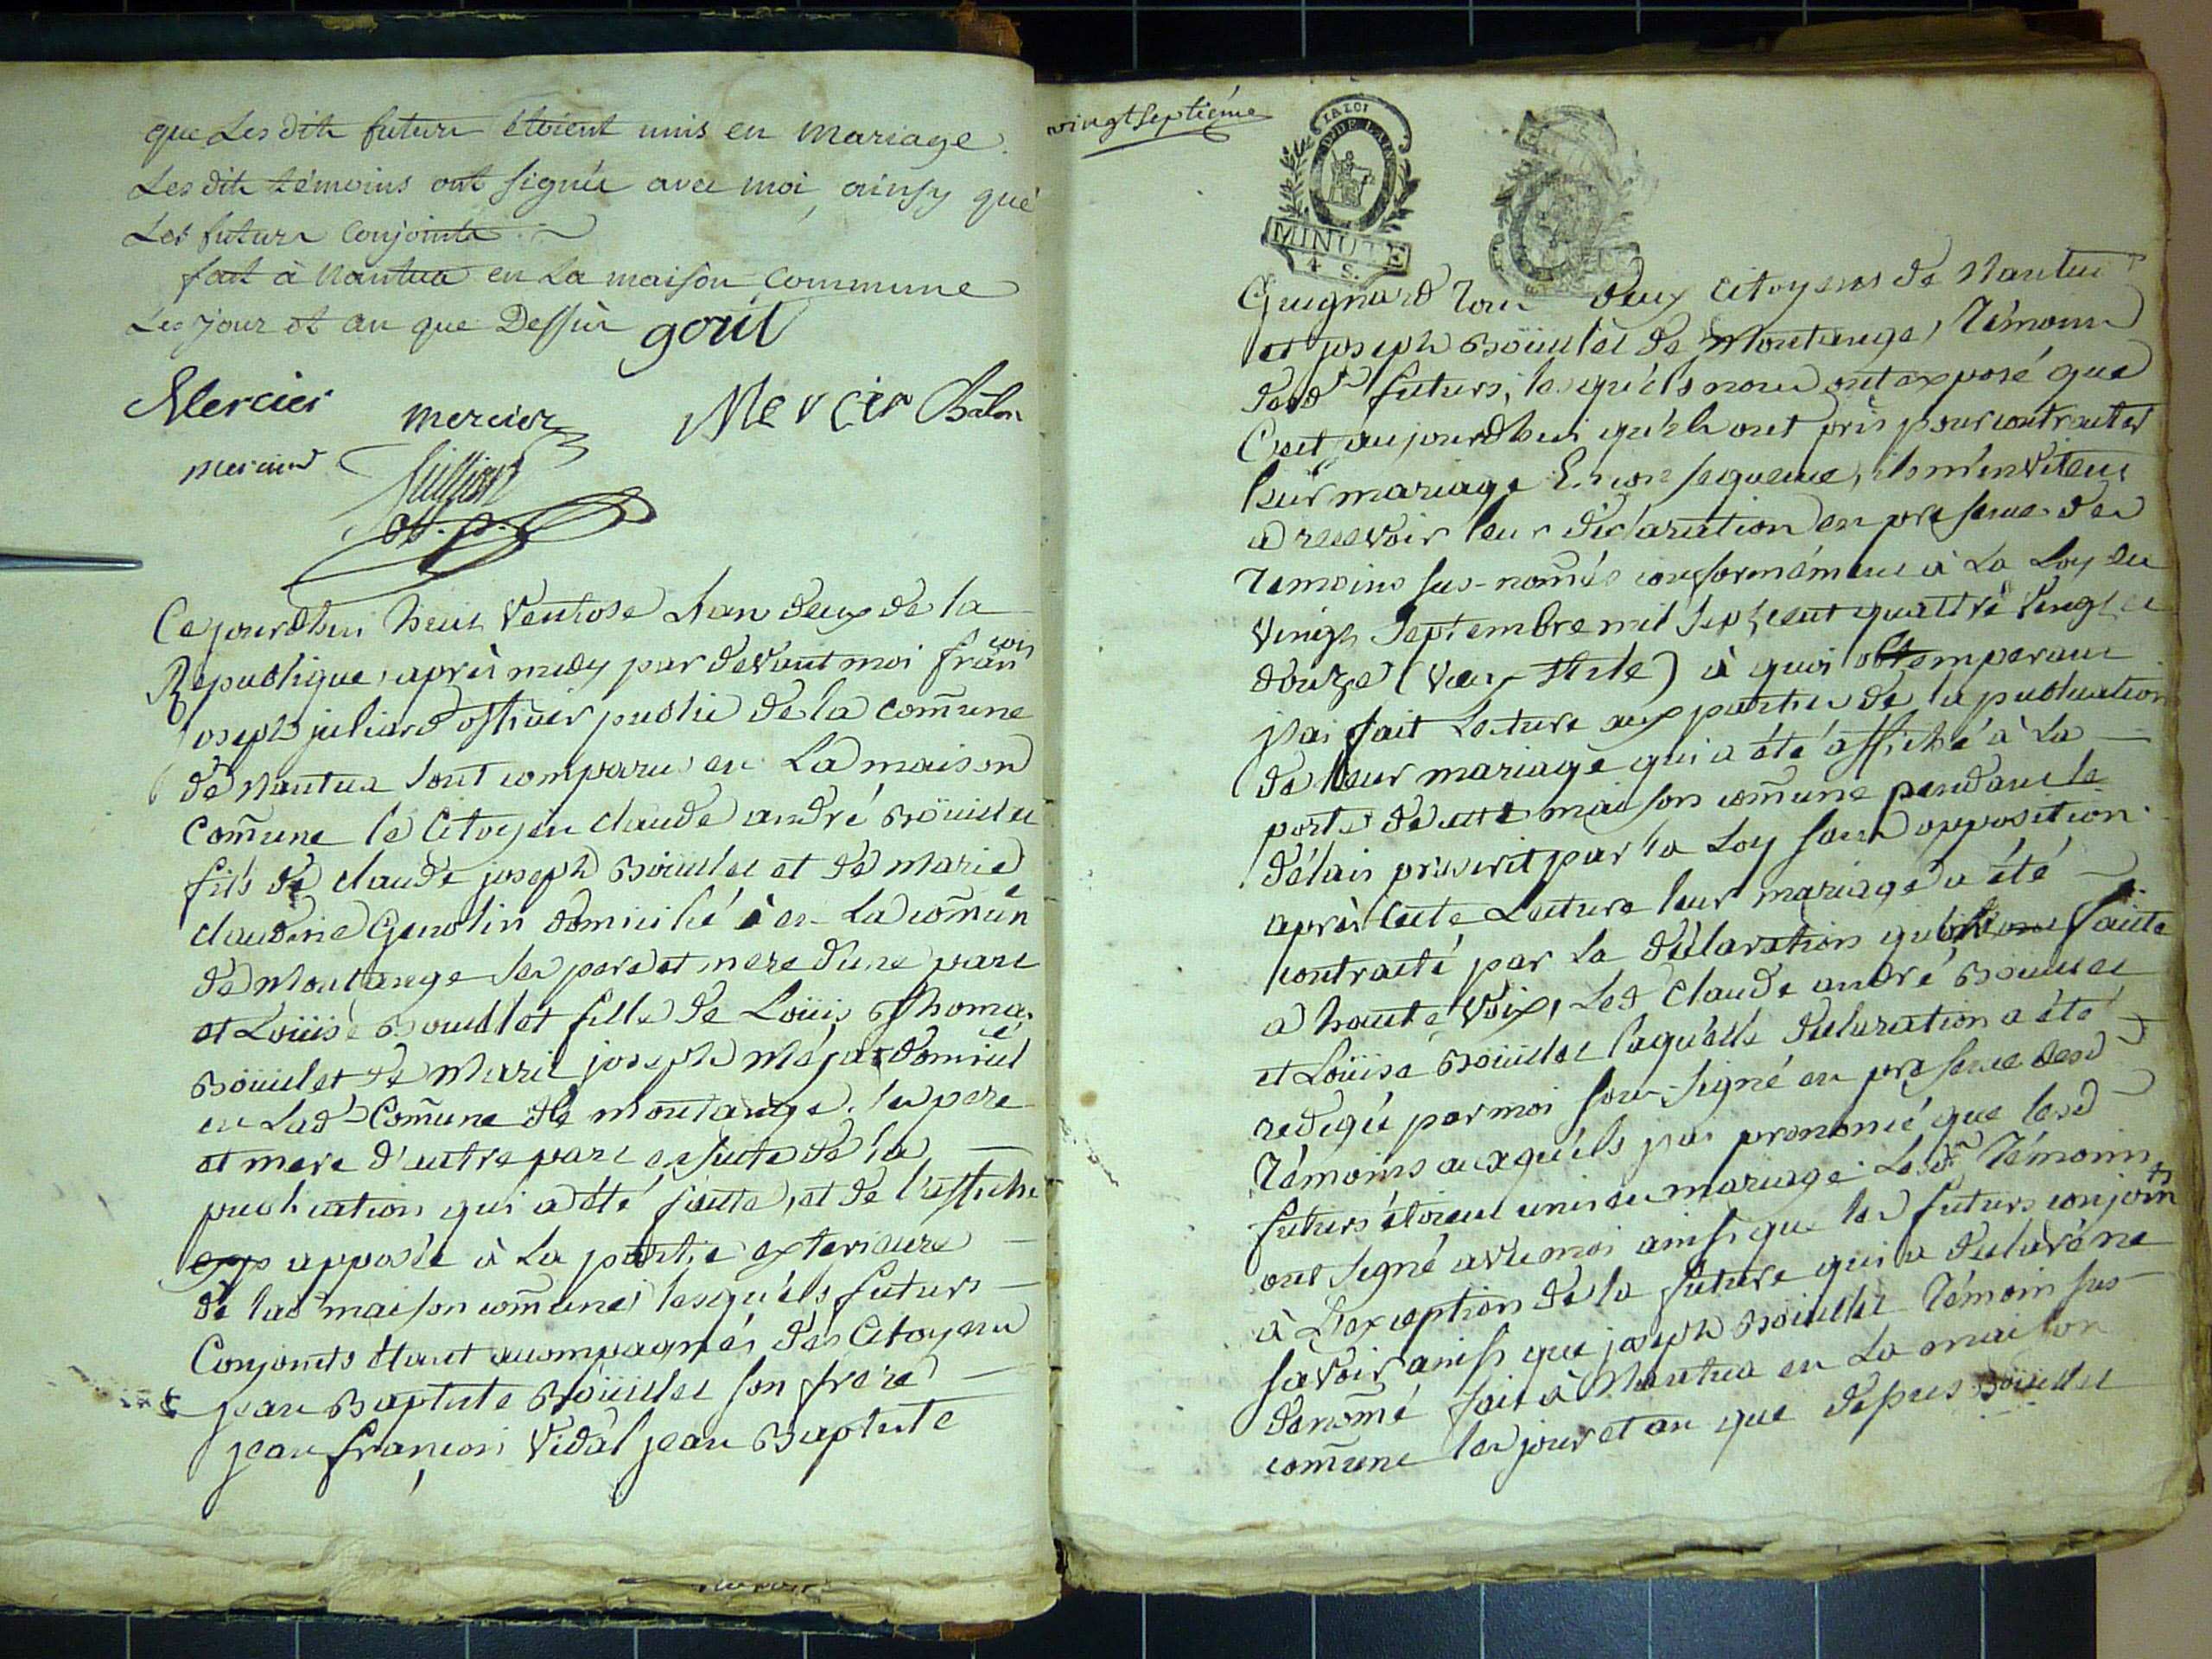 que Les dits futurs étoient unis en mariage.
Les dits témoins ont signés avec moi, ainsy que
Les futurs conjoints
fait à Nantua en La maison commune
Les jour et an que Dessus goul
Mercier mercier Mercier Bâlon
mercier
Ce jourdhui huit Ventose Lan deux de la
Republique, après midy par devant moi françois
joseph juliard officier public de la com̄une
de Nantua sont comparus en La maison
Com̄une le Citoyen claude andré Boüillet
fils de claude joseph Boüillet et de Marie
claudine Genolin domicilié è en La com̄une
de Montange ses pere et mere d'une part
et Loüise Bouillet fille de Loüis Thomas
Boüillet de Marie joseph Méjat domicilié
en Lad. Com̄une de Montange. ses pere
et mere d'autre part ensuite de la
publication qui a été faite, et de l'affiche
apposée à La partie exterieure
de lad. maison com̄une, lesquels futurs
Conjoints étant accompagnés des Citoyens
jean Baptiste Boüillet son frere
jean françois Vidal jean Baptiste
vingtseptième
LA LOI
MINUTE
4 S.
Guignard Tous deux citoyens de Nantua
et joseph Boüillet de Montange, Témoins
desd. futurs, lesquels nous ont exposé que
C'est aujourdhui qu'ils ont pris pour contracter
leur mariage En consequence, ils m'invitent
a recevoir leur déclaration en presence des
Temoins sus-nom̄és conformément à La Loy du
vingt Septembre mil sept cent quattre vingt et
douze (vieux stile) à quoi obtemperant
j'ai fait Lecture aux parties de la publication
de leur mariage qui a été affiché à La
porte de cette maison com̄une pendant le
délais prescrit par la Loy sans opposition
après cette Lecture leur mariage a été
contracté par La déclaration qu'ont faite
a haute voix, Led. Claude andré Boüillet
et Loüise Boüillet laquelle déclaration a été
redigée par moi sous-signé en presence desd.
Témoins auxquels j'ai prononcé que lesd.
futurs étoient unis en mariage. Lesd. Témoins
ont signé avec moi ainsi que les futurs conjoints
à L'exception de la future qui a déclaré ne
savoir ainsi que joseph Boüillet Témoin sus
denom̄é fait à Nantua en La maison
com̄une les jour et an que dessus Boüillet